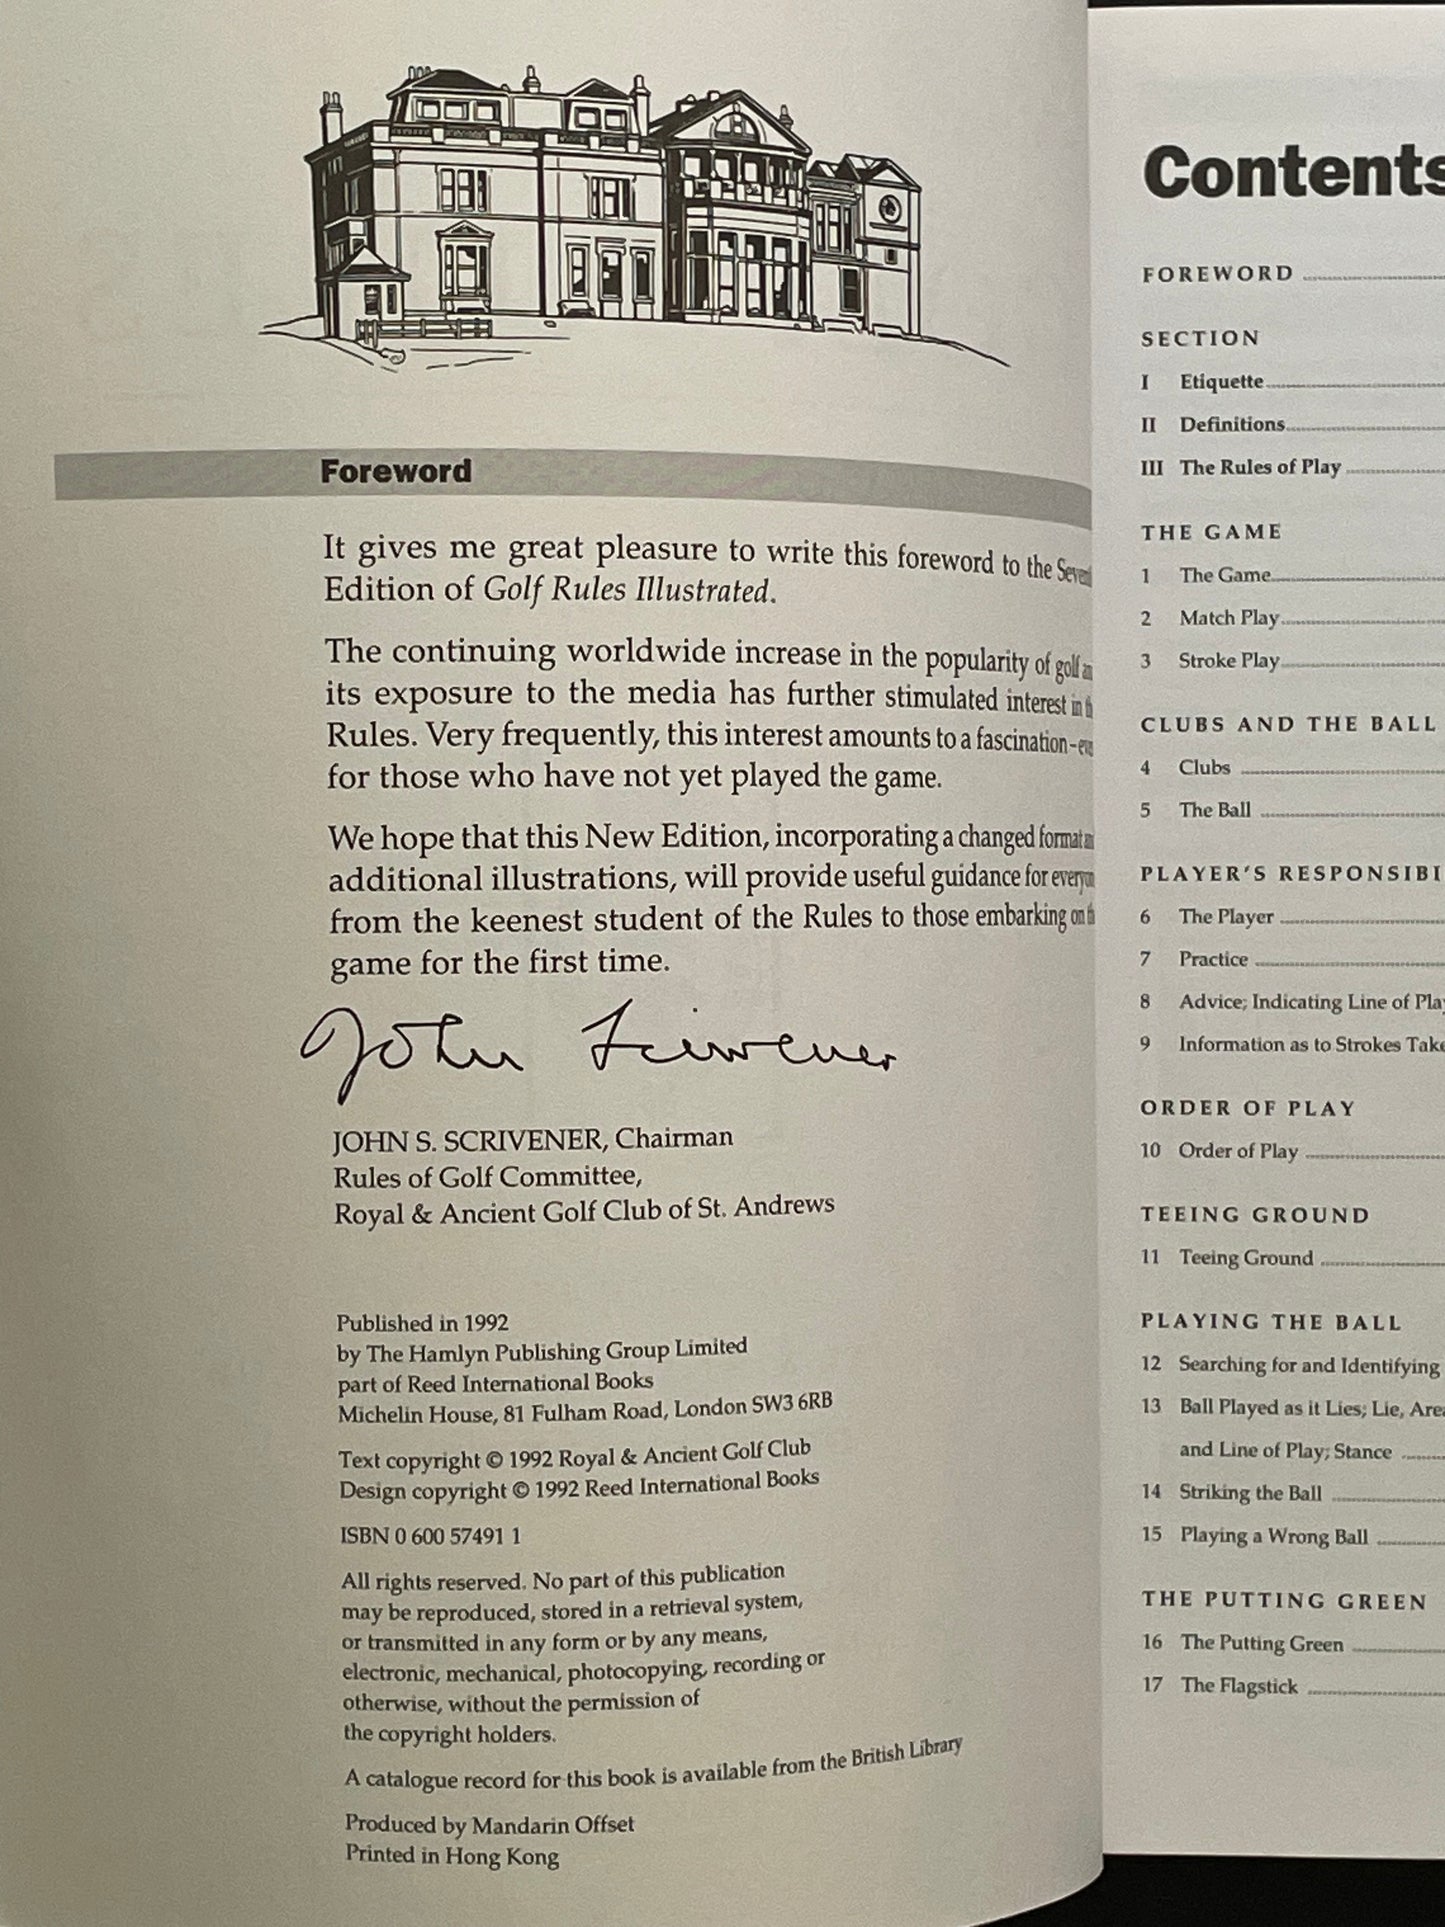 Foreword
It gives me great pleasure to write this foreword to the
Edition of Golf Rules Illustrated.
The continuing worldwide increase in the popularity of golf
its exposure to the media has further stimulated interest in
Rules. Very frequently, this interest amounts to a fascination –
for those who have not yet played the game.
We hope that this New Edition, incorporating a changed format
additional illustrations, will provide useful guidance for
from the keenest student of the Rules to those embarking on
game for the first time.
John Scrivener
JOHN S. SCRIVENER, Chairman
Rules of Golf Committee,
Royal & Ancient Golf Club of St. Andrews
Published in 1992
by The Hamlyn Publishing Group Limited
part of Reed International Books
Michelin House, 81 Fulham Road, London SW3 6RB
Text copyright © 1992 Royal & Ancient Golf Club
Design copyright © 1992 Reed International Books
ISBN 0 600 57491 1
All rights reserved. No part of this publication
may be reproduced, stored in a retrieval system,
or transmitted in any form or by any means,
electronic, mechanical, photocopying, recording or
otherwise, without the permission of
the copyright holders.
A catalogue record for this book is available from the British Library
Produced by Mandarin Offset
Printed in Hong Kong
Contents
FOREWORD
SECTION
I Etiquette
II Definitions
III The Rules of Play
THE GAME
1 The Game
2 Match Play
3 Stroke Play
CLUBS AND THE BALL
4 Clubs
5 The Ball
PLAYER'S RESPONSIBI
6 The Player
7 Practice
8 Advice; Indicating Line of Play
9 Information as to Strokes Take
ORDER OF PLAY
10 Order of Play
TEEING GROUND
11 Teeing Ground
PLAYING THE BALL
12 Searching for and Identifying
13 Ball Played as it Lies; Lie, Area
and Line of Play; Stance
14 Striking the Ball
15 Playing a Wrong Ball
THE PUTTING GREEN
16 The Putting Green
17 The Flagstick